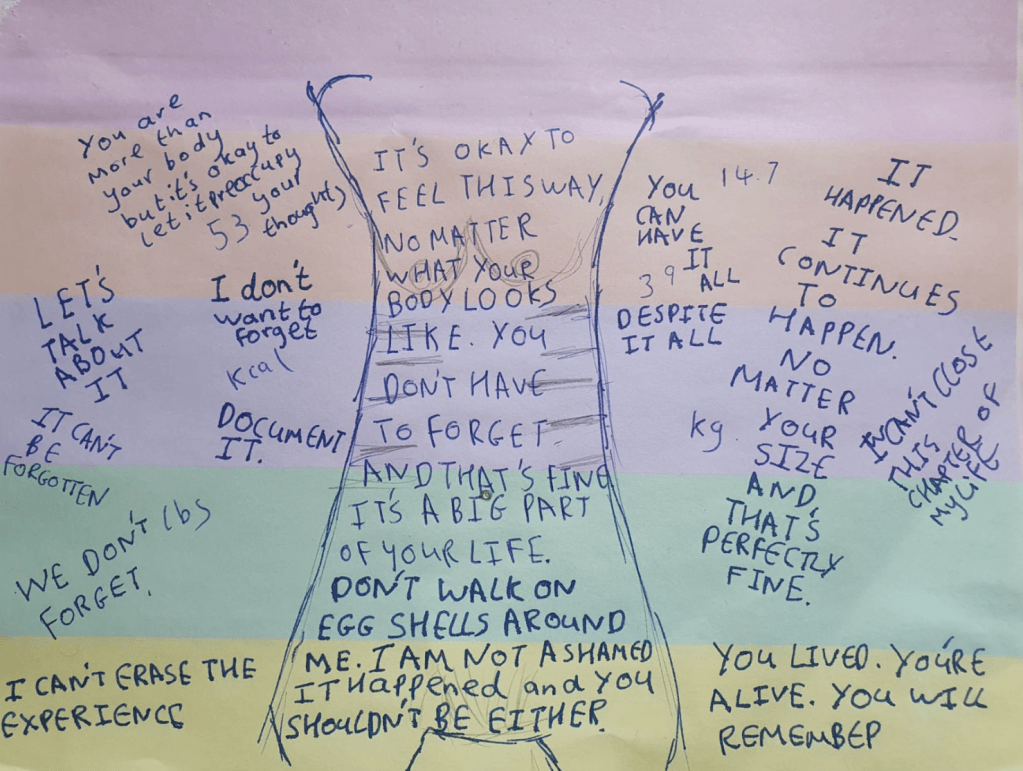 You are
more than
your body
but it's okay to
let it preoccupy
53 your
thoughts)
LET'S
TALK
ABOUT
IT
I don't
want to
forget
kcal
IT CAN'T
BE
FORGOTTEN
DOCUMENT
IT.
WE DON'T
FORGET.
lbs
I CAN'T ERASE THE
EXPERIENCE
IT'S OKAY TO
FEEL THIS WAY,
NO MATTER
WHAT YOUR
BODY LOOKS
LIKE. YOU
DON'T HAVE
TO FORGET
AND THAT'S FINE
IT'S A BIG PART
OF YOUR LIFE.
DON'T WALK ON
EGG SHELLS AROUND
ME. I AM NOT ASHAMED
IT Happened and YOU
SHOULDN'T BE EITHER.
YOU
CAN
HAVE
IT
ALL
DESPITE
IT ALL
14.7
39
kg
IT
HAPPENED.
IT
CONTINUES
TO
HAPPEN.
NO
MATTER
YOUR
SIZE
AND
THAT'S
PERFECTLY
FINE.
CAN'T CLOSE
THIS
CHAPTER OF
MY LIFE
YOU LIVED. YOU'RE
ALIVE. YOU WILL
REMEMBER